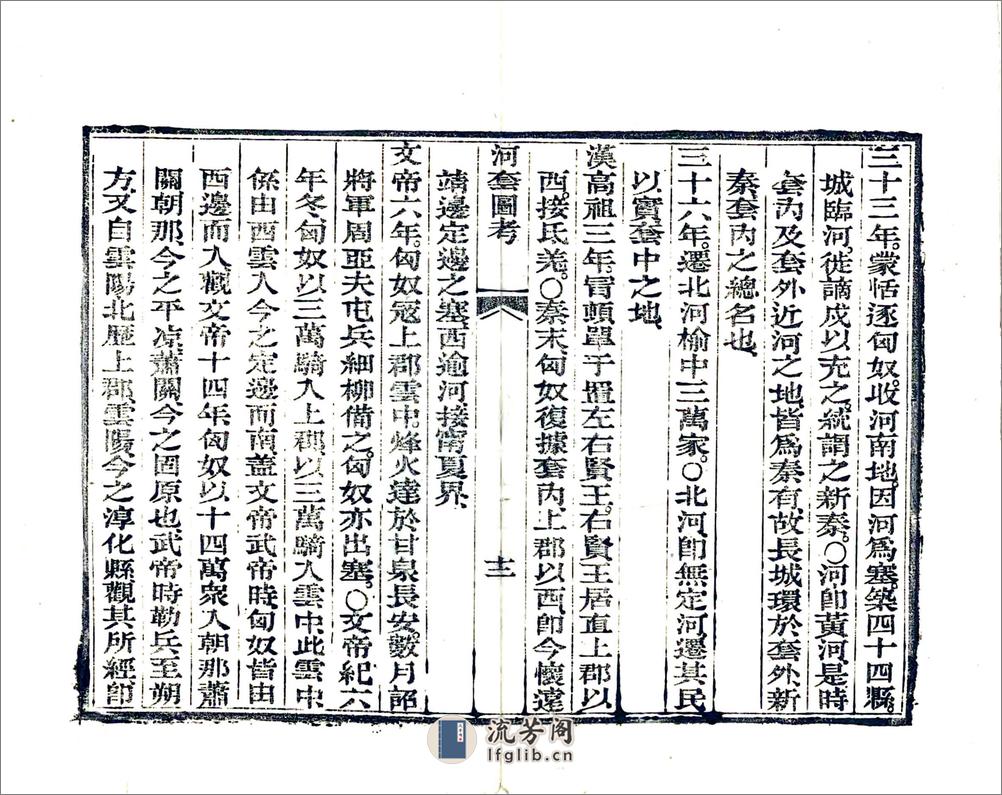 三十三年。蒙恬逐匈奴。收河南地。因河爲塞。築四十四縣。
城臨河。徙謫戍以充之。統謂之新秦。〇河卽黃河。是時
套內及套外近河之地皆爲秦有。故長城環於套外。新
秦。套內之總名也。
三十六年。遷北河榆中三萬家。〇北河。卽無定河。遷其民
以實套中之地。
漢高祖三年。冒頓單于置左右賢王。右賢王居直上郡以
西。接氐羌。〇秦末。匈奴復據套內。上郡以西。卽今懷遠
河套圖考
十二
靖邊定邊之塞。西逾河。接甯夏界。
文帝六年。匈奴寇上郡雲中。烽火達於甘泉長安。數月。詔
將軍周亞夫屯兵細柳備之。匈奴亦出塞。〇文帝紀。六
年冬。匈奴以三萬騎入上郡。以三萬騎入雲中。此雲中
係由西雲入今之定邊而南。蓋文帝武帝時。匈奴皆由
西邊而入。觀文帝十四年。匈奴以十四萬衆入朝那蕭
關。朝那。今之平凉。蕭關。今之固原也。武帝時勒兵至朔
方。又自雲陽北歷上郡。雲陽今之淳化縣。觀其所經。卽
流芳阁
lfglib.cn